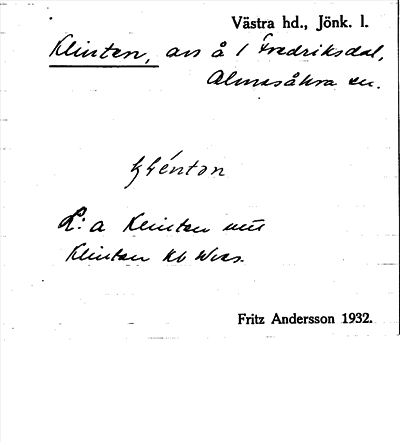 Västra hd., Jönk. l.
Klinten, avs å 1 Fredriksdal,
Almesåkra sn.
L: a Klinten
Klinten
Fritz Andersson 1932.